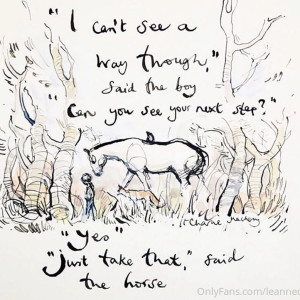 "I can't see a
way through,"
said the boy
"Can you see your next step?"
Charlie Mackesy
"Yes"
"Just take that," said
the horse
OnlyFans.com/leannec